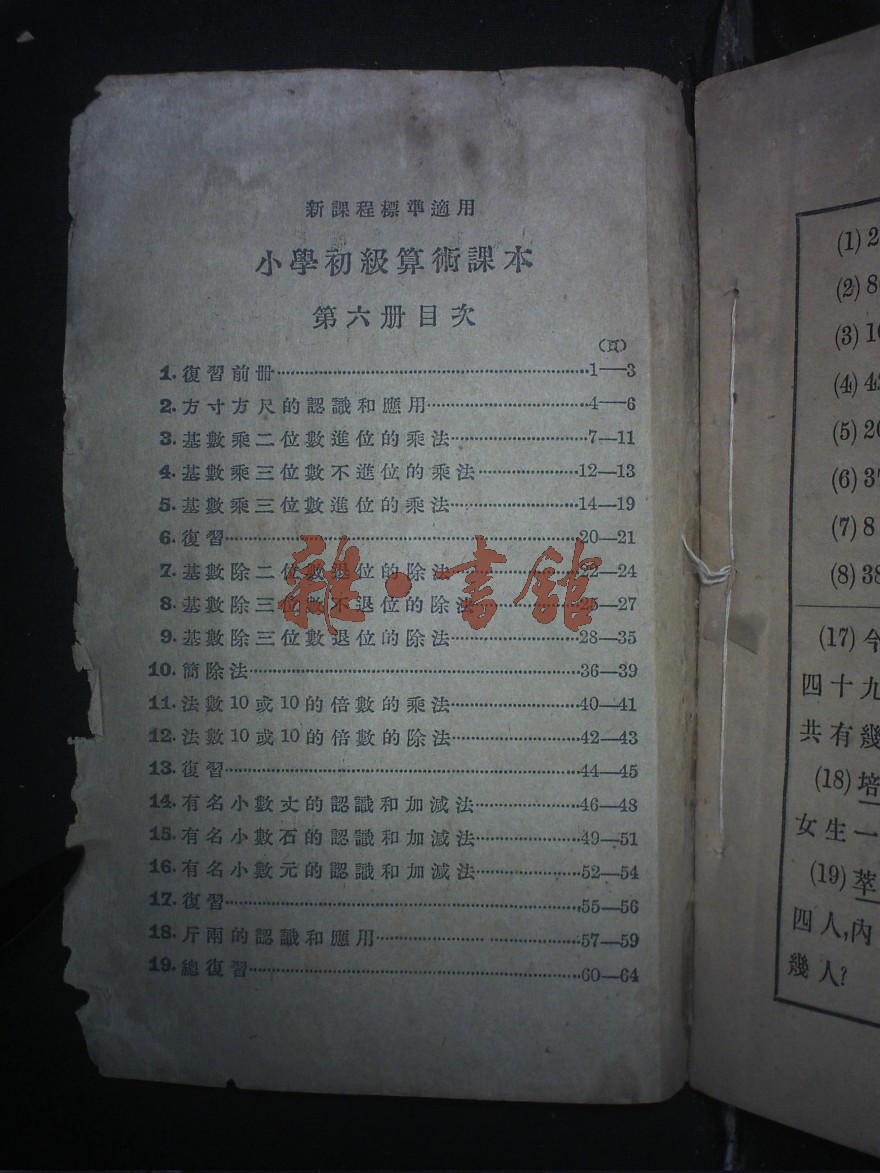 新課程標準適用
小學初級算術課本
第六册目次
(頁)
1. 復習前册 1—3
2. 方寸方尺的認識和應用 4—6
3. 基數乘二位數進位的乘法 7—11
4. 基數乘三位數不進位的乘法 12—13
5. 基數乘三位數進位的乘法 14—19
6. 復習 20—21
7. 基數除二位數退位的除法 22—24
8. 基數除三位數不退位的除法 25—27
9. 基數除三位數退位的除法 28—35
10. 簡除法 36—39
11. 法數10或10的倍數的乘法 40—41
12. 法數10或10的倍數的除法 42—43
13. 復習 44—45
14. 有名小數丈的認識和加減法 46—48
15. 有名小數石的認識和加減法 49—51
16. 有名小數元的認識和加減法 52—54
17. 復習 55—56
18. 斤兩的認識和應用 57—59
19. 總復習 60—64
雜·書館
(1) 2
(2) 8
(3) 1
(4) 4
(5) 2
(6) 3
(7) 8
(8) 38
(17) 今
四十九
共有幾
(18) 培
女生一
(19) 萃
四人,內
幾人?